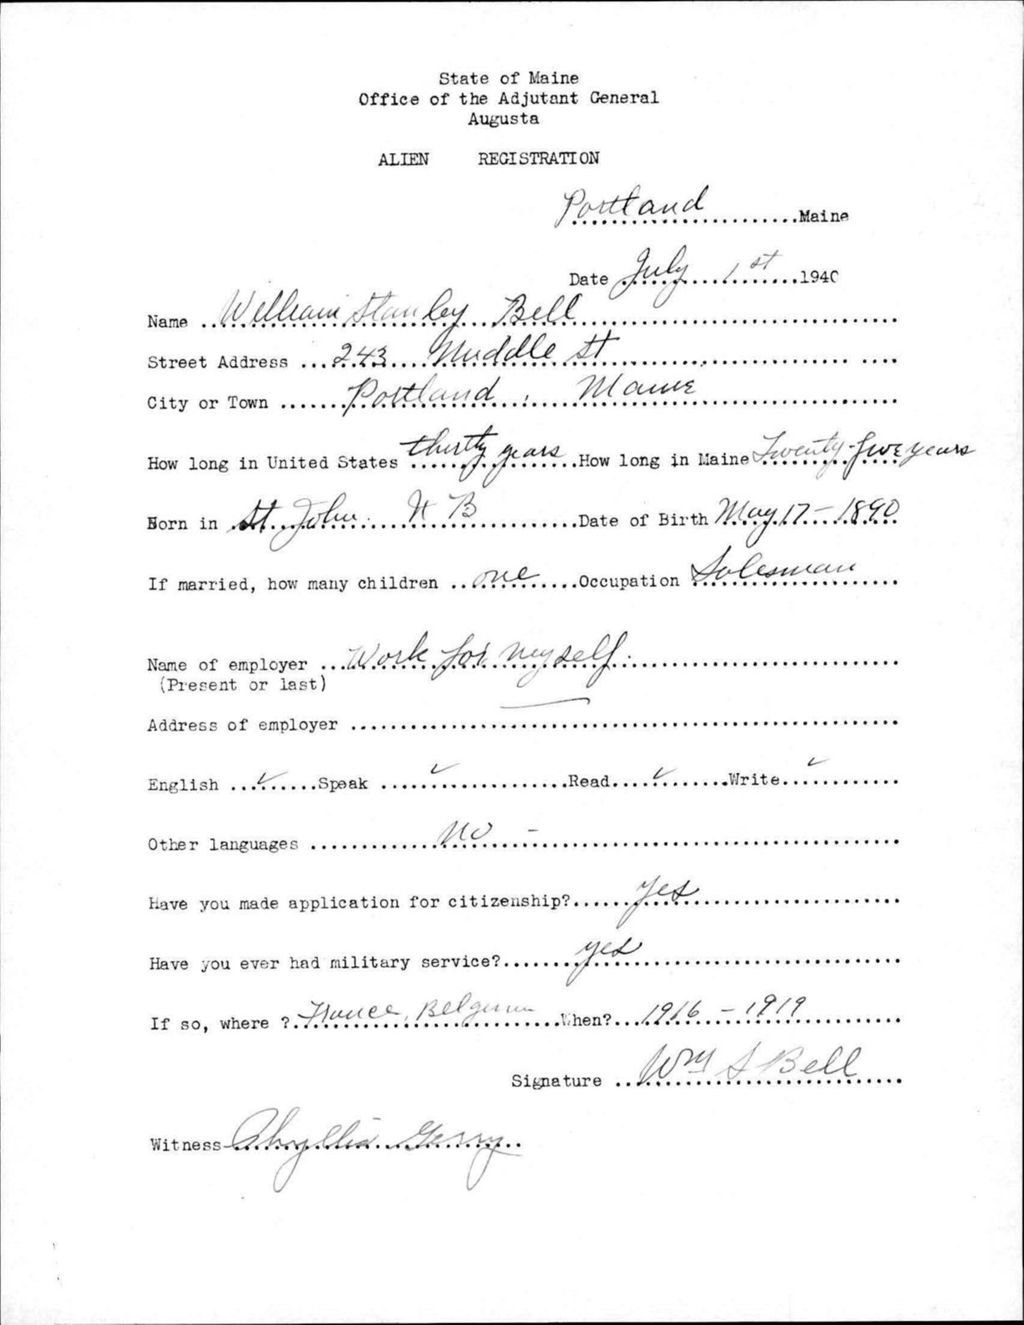 State of Maine
Office of the Adjutant General
Augusta
ALIEN REGISTRATION
Portland Maine
Date July 1st 1940
Name William Stanley Bell
Street Address 243 Middle St
City or Town Portland, Maine
How long in United States thirty years How long in Maine Twenty-five years
Born in St. John N B Date of Birth May 17 - 1890
If married, how many children one Occupation Salesman
Name of employer Work for myself.
(Present or last)
Address of employer
English ✓ Speak ✓ Read ✓ Write ✓
Other languages No -
Have you made application for citizenship? Yes
Have you ever had military service? yes
If so, where ? France, Belgium When? 1916 - 1919
Signature Wm S Bell
Witness Phyllis Gerry